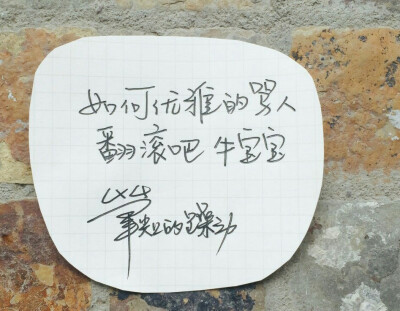 如何优雅的骂人
翻滚吧 牛宝宝
笔尖上的躁动